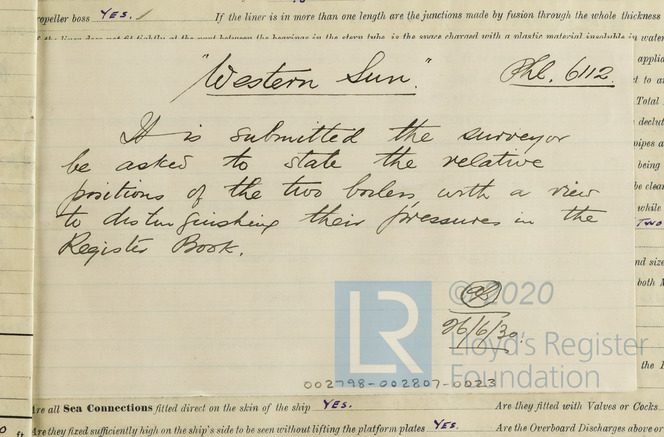 ropeller boss YES. If the liner is in more than one length are the junctions made by fusion through the whole thickness
"Western Sun." Phl. 6112.
It is submitted the surveyor
be asked to state the relative
positions of the two boilers, with a view
to distinguishing their pressures in the
Register Book.
26/6/30.
LR
© 2020
Lloyd's Register
Foundation
002798-002807-0023
Are all Sea Connections fitted direct on the skin of the ship YES. Are they fitted with Valves or Cocks
Are they fixed sufficiently high on the ship's side to be seen without lifting the platform plates YES. Are the Overboard Discharges above or